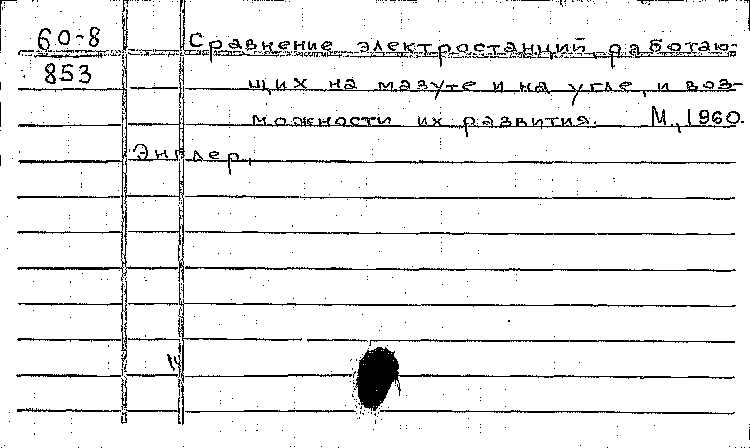 60-8
853
Сравнение электростанций, работаю-
щих на мазуте и на угле, и воз-
можности их развития. М., 1960.